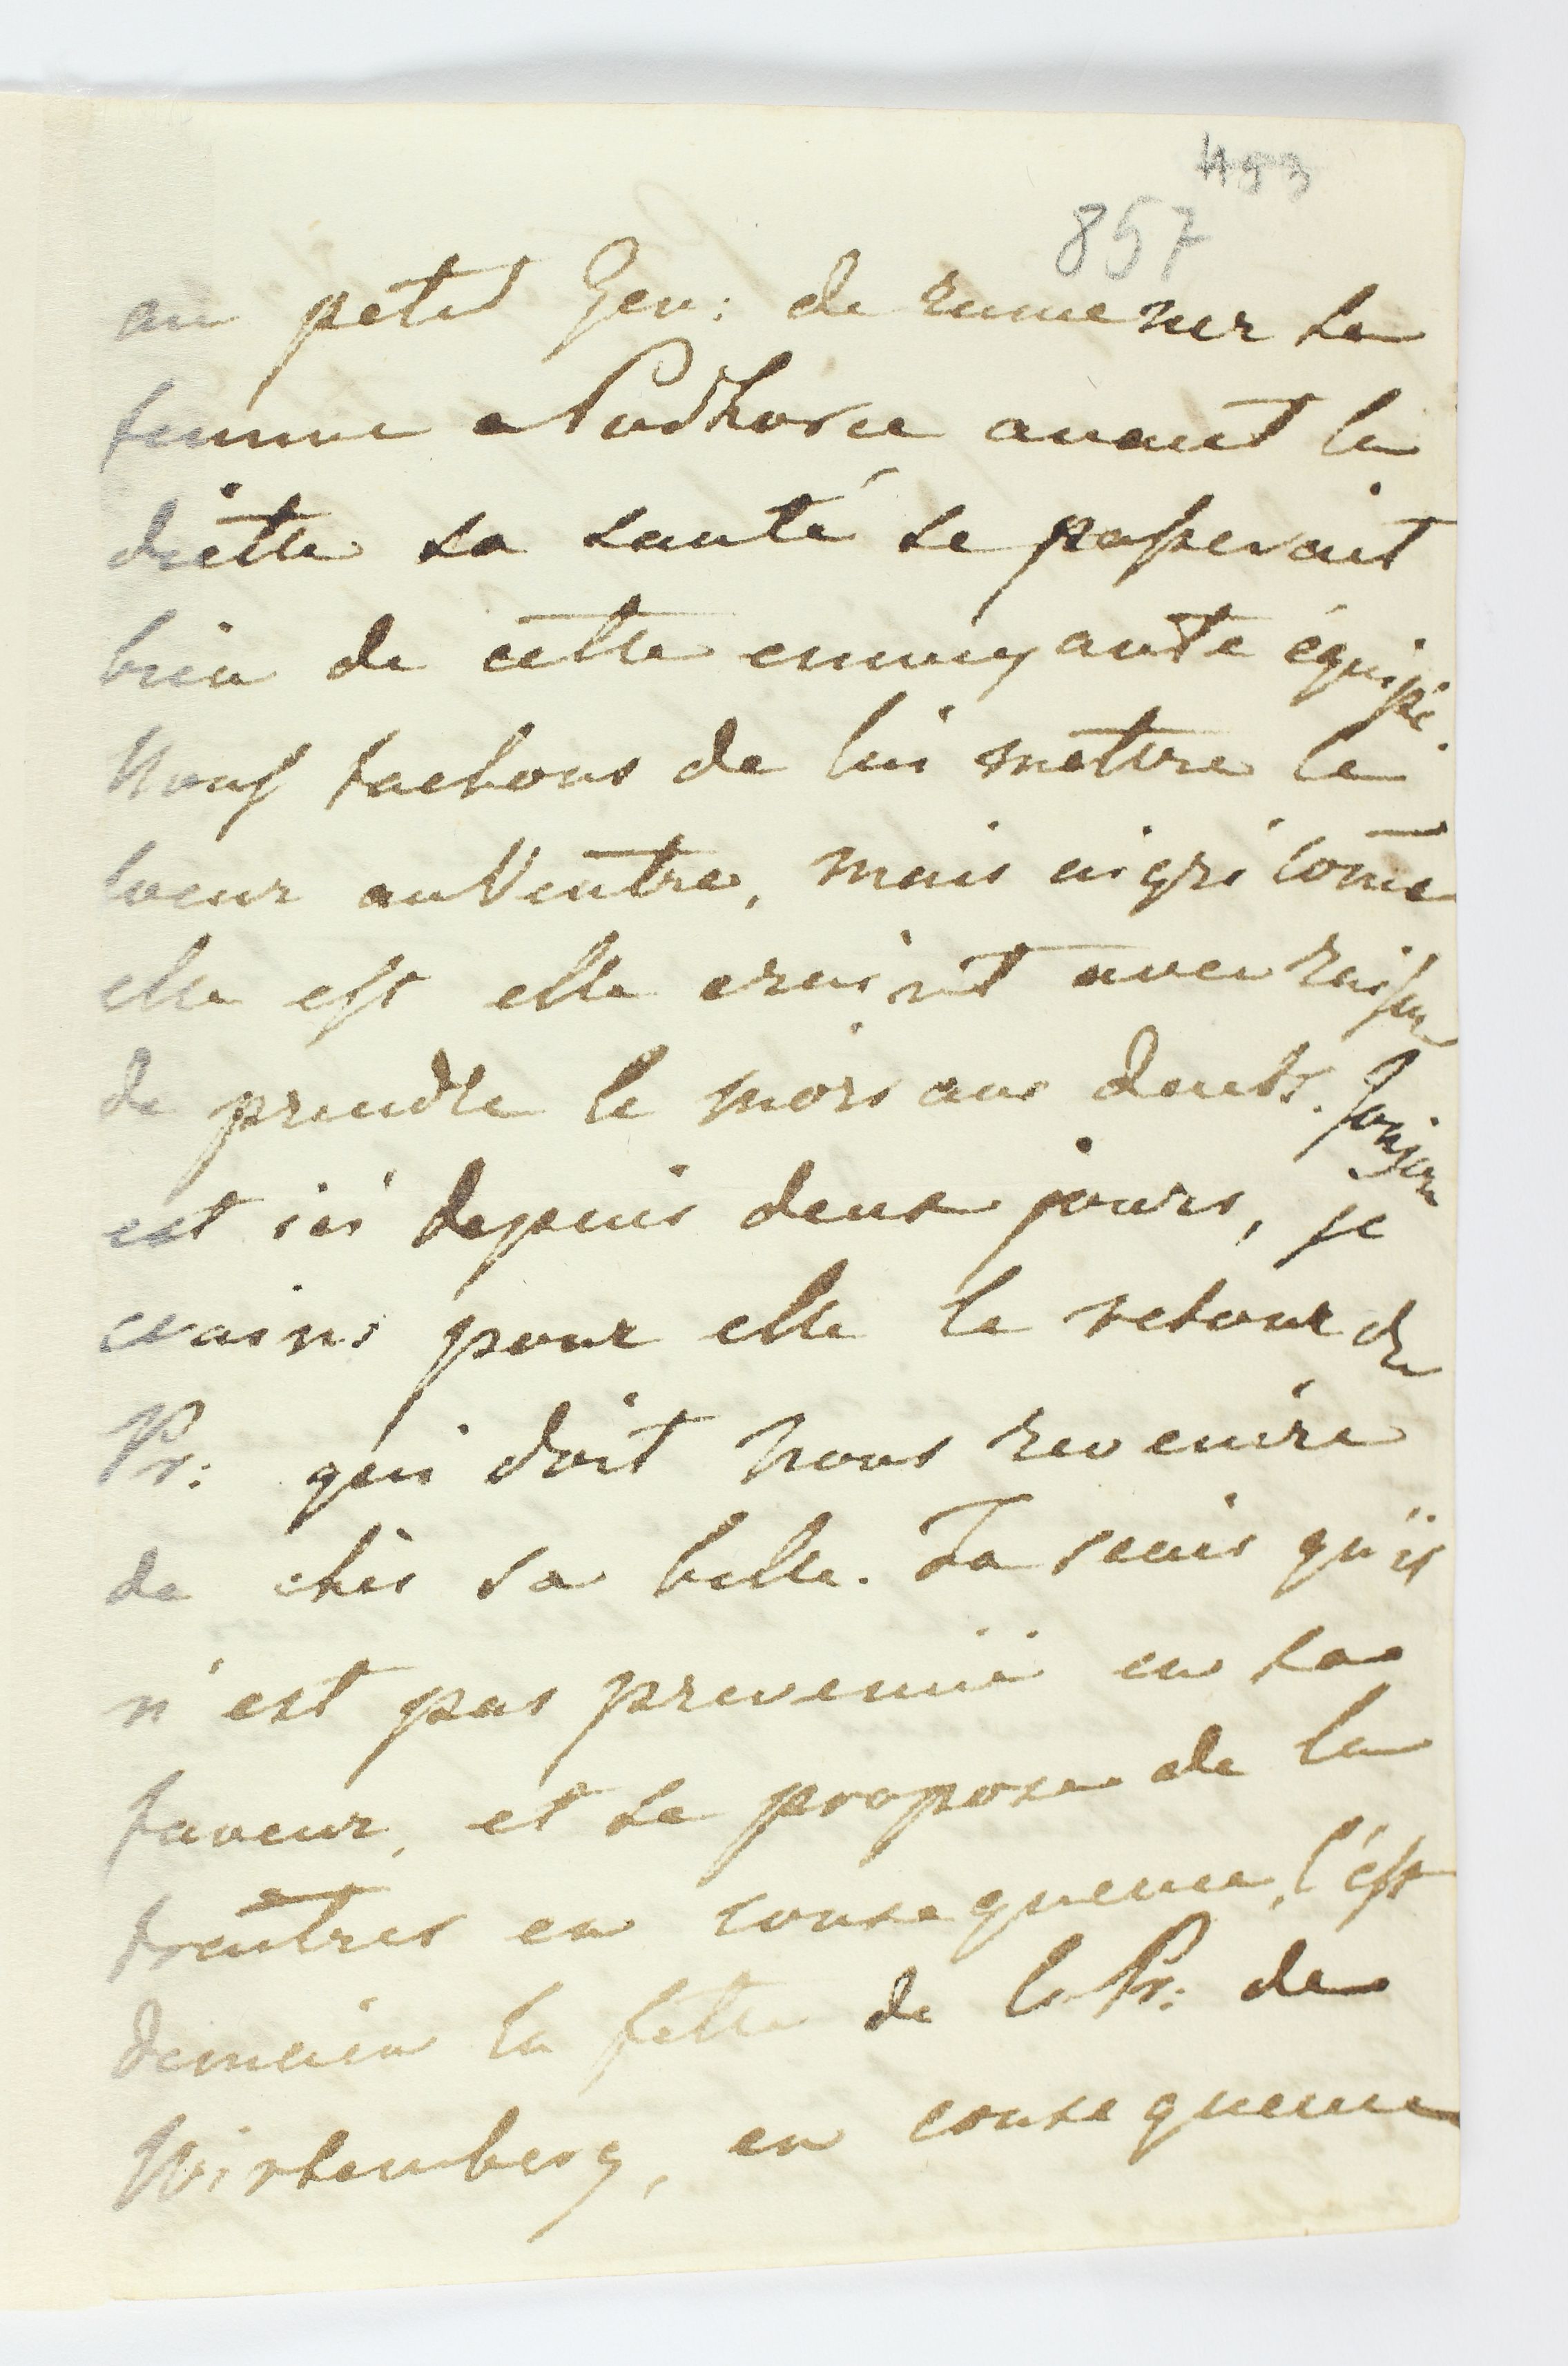 493
857
au petit Gen: de ramener sa
femme a Podhorce avant la
diette sa santé se passerait
bien de cette ennuyante équipé.
Nous tachons de lui mettre le
coeur au Ventre, mais aigri come
elle est elle craint avec raison
de prendre le mors aux dents.
est ici depuis deux jours, je
crains pour elle le retour du
Pr: qui doit nous revenire
de chés sa belle. Ja scais qu'il
n'est pas prevenüe en sa
faveur, et se propose de la
traitres en consequence, c'est
demain la fette de la Pr: de
Wirtemberg, en consequence